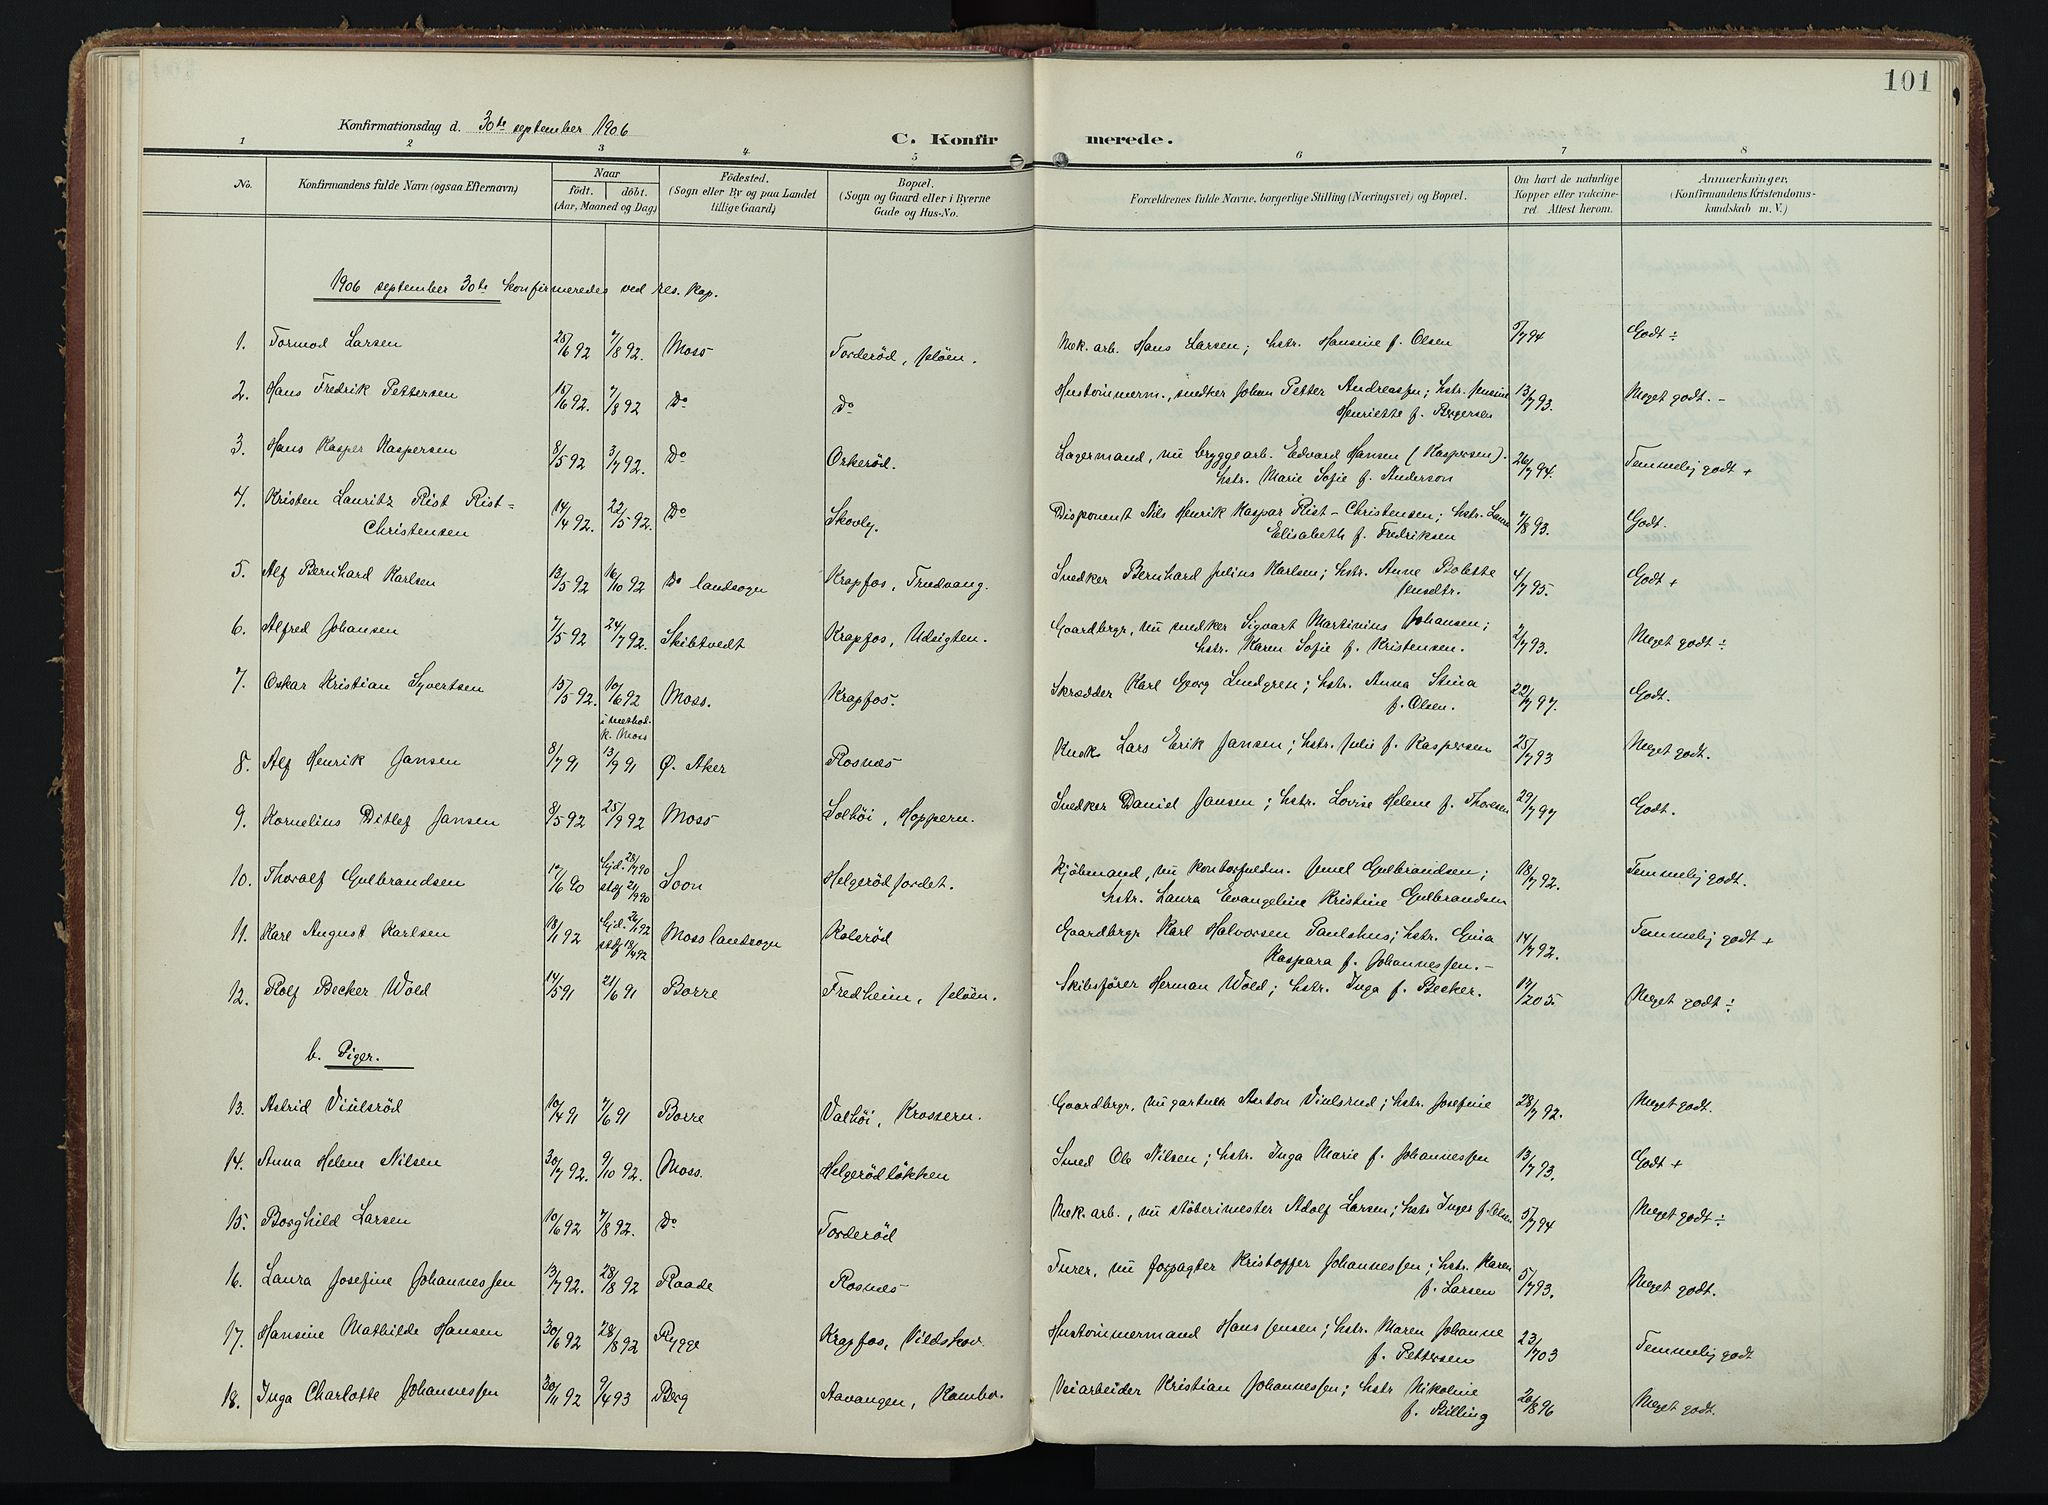 101
Konfirmationsdag d. 30te september 1906
C. Konfirmerede.
1 2 3 4 5 6 7 8
No. Konfirmandens fulde Navn (ogsaa Efternavn) Naar født. døbt. (Aar, Maaned og Dag) Fødested. (Sogn eller By og paa Landet tillige Gaard) Bopæl. (Sogn og Gaard eller i Byerne Gade og Hus-No. Forældrenes fulde Navne, borgerlige Stilling (Næringsvei) og Bopæl. Om havt de naturlige Kopper eller vaccineret Attest herom. Anmærkninger. (Konfirmandens Kristendomskundskab m. V.)
1906 september 30te konfirmeredes ved res. kap.
1. Tormod Larsen 25/6 92 7/8 92. Moss Torderød, Jeløen. Mek. arb. Hans Larsen; hstr. Hansine f. Olsen 5/7 94 Godt ÷
2. Hans Fredrik Pettersen 15/6 92. 7/8 92 Do Do Hustømmerm., snedker Johan Petter Andreassen; hstr. Jensine 13/7 93. Meget godt. -
Henriette f. Birgersen
3. Hans Kasper Kaspersen 8/5 92 3/7 92. Do Orkerød. Lagermand, nu bryggearb. Edvard Hansen (Kaspersen). 26/7 94. Temmelig godt +
hstr. Marie Sofie f. Anderson
4. Kristen Lauritz Rist Rist- 14/4 92. 22/5 92. Do Skovly. Disponent Nils Henrik Kaspar Rist-Christensen; hstr. Laura 4/8 93. Godt.
Christensen Elisabeth f. Fredriksen
5. Alf Bernhard Karlsen 13/5 92 16/10 92 Do landsogn Krapfos, Trudvang. Snedker Bernhard Julius Karlsen; hstr. Anne Bolette 4/7 95. Godt +
Jensdtr.
6. Alfred Johansen 7/5 92 24/7 92. Skibtvedt Krapfos, Udsigten. Gaardbrgr, nu snedker Sigvart Martinius Johansen; 2/7 93. Meget godt ÷
hstr. Karen Sofie f. Kristensen.
7. Oskar Kristian Syvertsen 15/5 92. 10/6 92 Moss. Krapfos. Skrædder Karl Georg Lundgren; hstr. Anna Stina 22/7 97. Godt.
i methodk. Moss f. Olsen.
8. Alf Henrik Jansen 8/7 91 13/9 91 Ø. Aker Rosnæs Kusk Lars Erik Jansen; hstr. Julie f. Kaspersen 25/7 93 Meget godt.
9. Kornelius Ditlef Jansen 8/5 92 25/9 92 Moss Solhøi, Hoppern. Snedker Daniel Jansen; hstr. Lovise Helene f. Thoresen 29/7 97 Godt.
10. Thoralf Gulbrandsen 17/6 90 hjd. 25/7 90 stsf 21/9 90 Soon Helgerødjordet. Kjøbmand, nu kontorfuldm. Juul Gulbrandsen; 18/7 92. Temmelig godt.
hstr. Laura Evangeline Kristine Gulbrandsen
11. Karl August Karlsen 18/1 92 hjd. 26/1 92 stsf 18/4 92 Moss landsogn Rolsrød Gaardbrgr Karl Halvorsen Paulshus; hstr. Gina 14/7 92. Temmelig godt +
Kaspara f. Johannessen. -
12. Rolf Becker Wold 14/5 91 21/6 91 Borre Fredheim, Jeløen. Skibsfører Herman Wold; hstr. Inga f. Becker. 17/2 05. Meget godt ÷
b. Piger.
13. Astrid Viulsrød 10/4 91 7/6 91 Borre Valhøi, Krossern. Gaardbrgr, nu gartner Anton Viulsrud; hstr. Josefine 28/7 92. Meget godt.
14. Anna Helene Nilsen 30/7 92. 9/10 92. Moss. Helgerødløkken Smed Ole Nilsen; hstr. Inga Marie f. Johannessen 13/7 93. Godt +
15. Borghild Larsen 10/6 92 7/8 92. Do Torderød Mek. arb., nu støberimester Adolf Larsen; hstr Inger f. Olsen 5/7 94 Meget godt ÷
16. Laura Josefine Johannessen 13/7 92. 28/8 92 Raade Rosnæs Furer, nu forpagter Kristoffer Johannessen; hstr. Karen 5/7 93. Meget godt.
f. Larsen
17. Hansine Mathilde Hansen 30/6 92 28/8 92 Rygge Krapfos, Vildskov. Hustømmermand Hans Jensen; hstr. Maren Johanne 23/7 03 Temmelig godt
f. Pettersen
18. Inga Charlotte Johannessen 30/11 92 9/4 93 Berg Aavangen, Kambo. Veiarbeider Kristian Johannessen; hstr Nikoline 26/8 96 Meget godt.
f. Billing